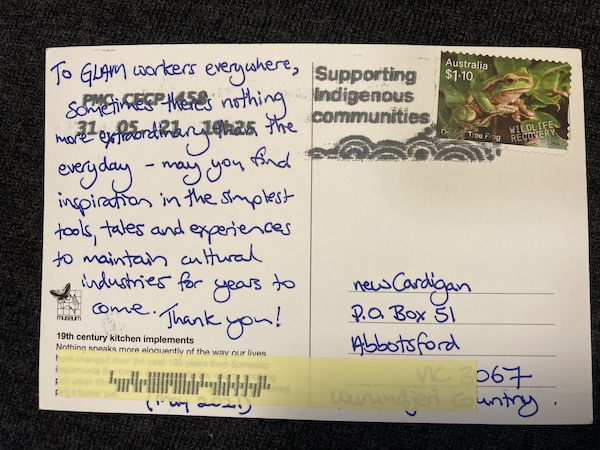 To GLAM workers everywhere,
Sometimes there's nothing
more extraordinary than the
everyday – may you find
inspiration in the simplest
tools, tales and experiences
to maintain cultural
industries for years to
come. Thank you!
museum
19th century kitchen implements
Nothing speaks more eloquently of the way our lives
have changed over the past 100 years than domestic
PMC CECP 458
31 05 21 19h25
Supporting
Indigenous
communities
Australia
$1·10
Tree Frog
WILDLIFE
RECOVERY
newCardigan
P.O Box 51
Abbotsford
VIC 3067
Wurundjeri Country.